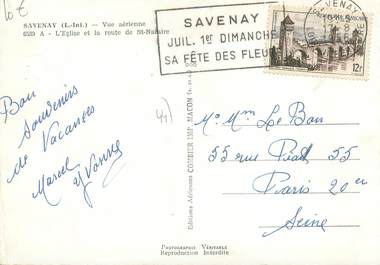 10 €
SAVENAY (L.-Inf.) — Vue aérienne
6529 A - L'Eglise et la route de St-Nazaire
SAVENAY
JUIL. 1er DIMANCHE
SA FÊTE DES FLEURS
SAVENAY
12f
Bon
Souvenirs
de Vacances
Marcel
Yvonne
44)
Editions Aériennes COMBIER IMP. MACON
M. et Mme Le Bon
55 rue 55
Paris 20er
Seine
PHOTOGRAPHIE VÉRITABLE
Reproduction Interdite